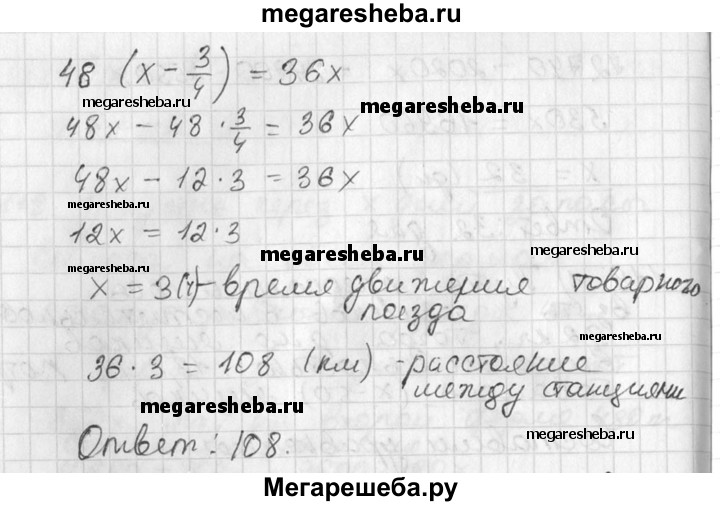 megaresheba.ru
48 (x - 3/4) = 36x
megaresheba.ru
megaresheba.ru
48x - 48 · 3/4 = 36x
48x - 12 · 3 = 36x
megaresheba.ru
12x = 12 · 3
megaresheba.ru
megaresheba.ru
x = 3(ч) - время движения товарного
поезда
megaresheba.ru
36 · 3 = 108 (км) - расстояние
между станциями
megaresheba.ru
Ответ: 108.
megaresheba.ru
Мегарешеба.ру